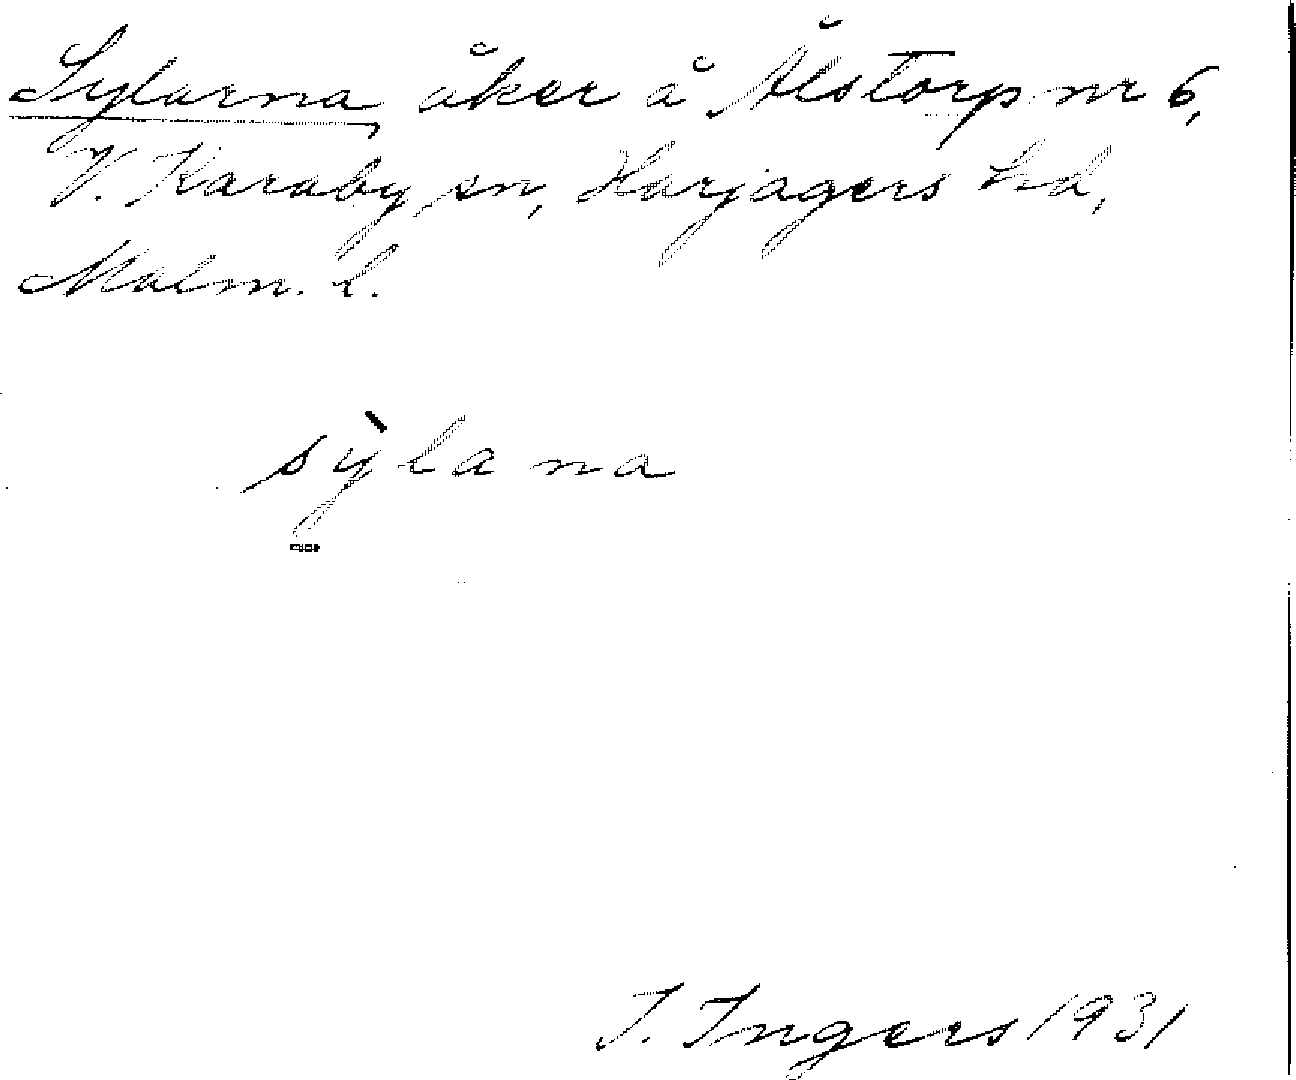 Sylarna, åker å Ålstorp nr 6,
V. Karaby sn, Harjagers hd,
Malm. l.
sỳlana
I. Ingers 1931